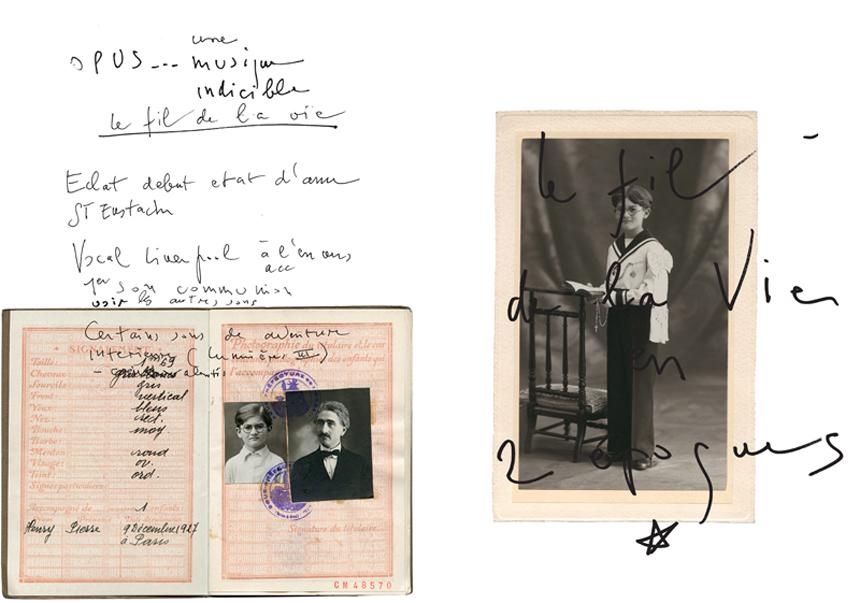 une
OPUS --- musique
indicible
le fil de la vie
Eclat debut etat d'ame
ST Eustache
Vocal Liverpool à l'envers
acc
1er son communion
voir les autres sons
Certains sons de aventure
interieure (Lumières III)
SIGNALEMENT
Taille:
Cheveux:
Sourcils gris
Front: vertical
Yeux: bleus
Nez: rect.
Bouche: moy.
Barbe:
Menton rond
Visage: ov.
Teint: ord.
Signes particuliers:
Accompagné de 1 enfants:
Henry Pierre 9 Décembre 1927
à Paris
Photographie du titulaire et, le cas
des enfants qui
l'accompa
PREFECTURE
Signature du titulaire
GM 48570
le fil
de la Vie
en
2 epoques